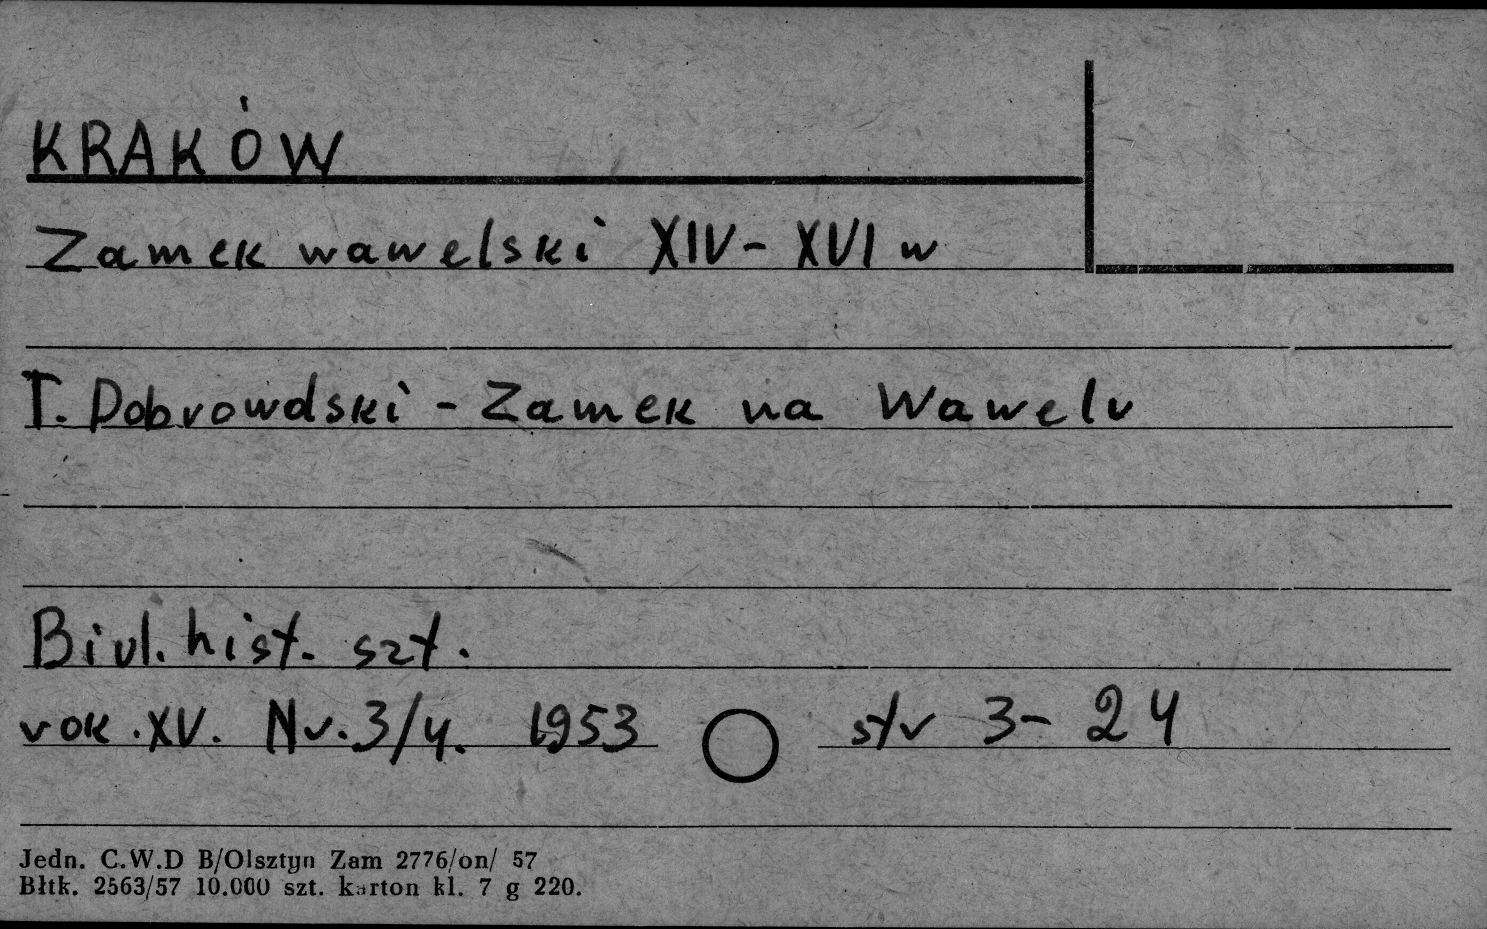 KRAKÓW
Zamek wawelski XIV - XVI w
T. Dobrowolski - Zamek na Wawelu
Biul. hist. szt.
rok. XV. Nr. 3/4. 1953 str 3 - 24
Jedn. C.W.D B/Olsztyn Zam 2776/on/ 57
Błtk. 2563/57 10.000 szt. karton kl. 7 g 220.